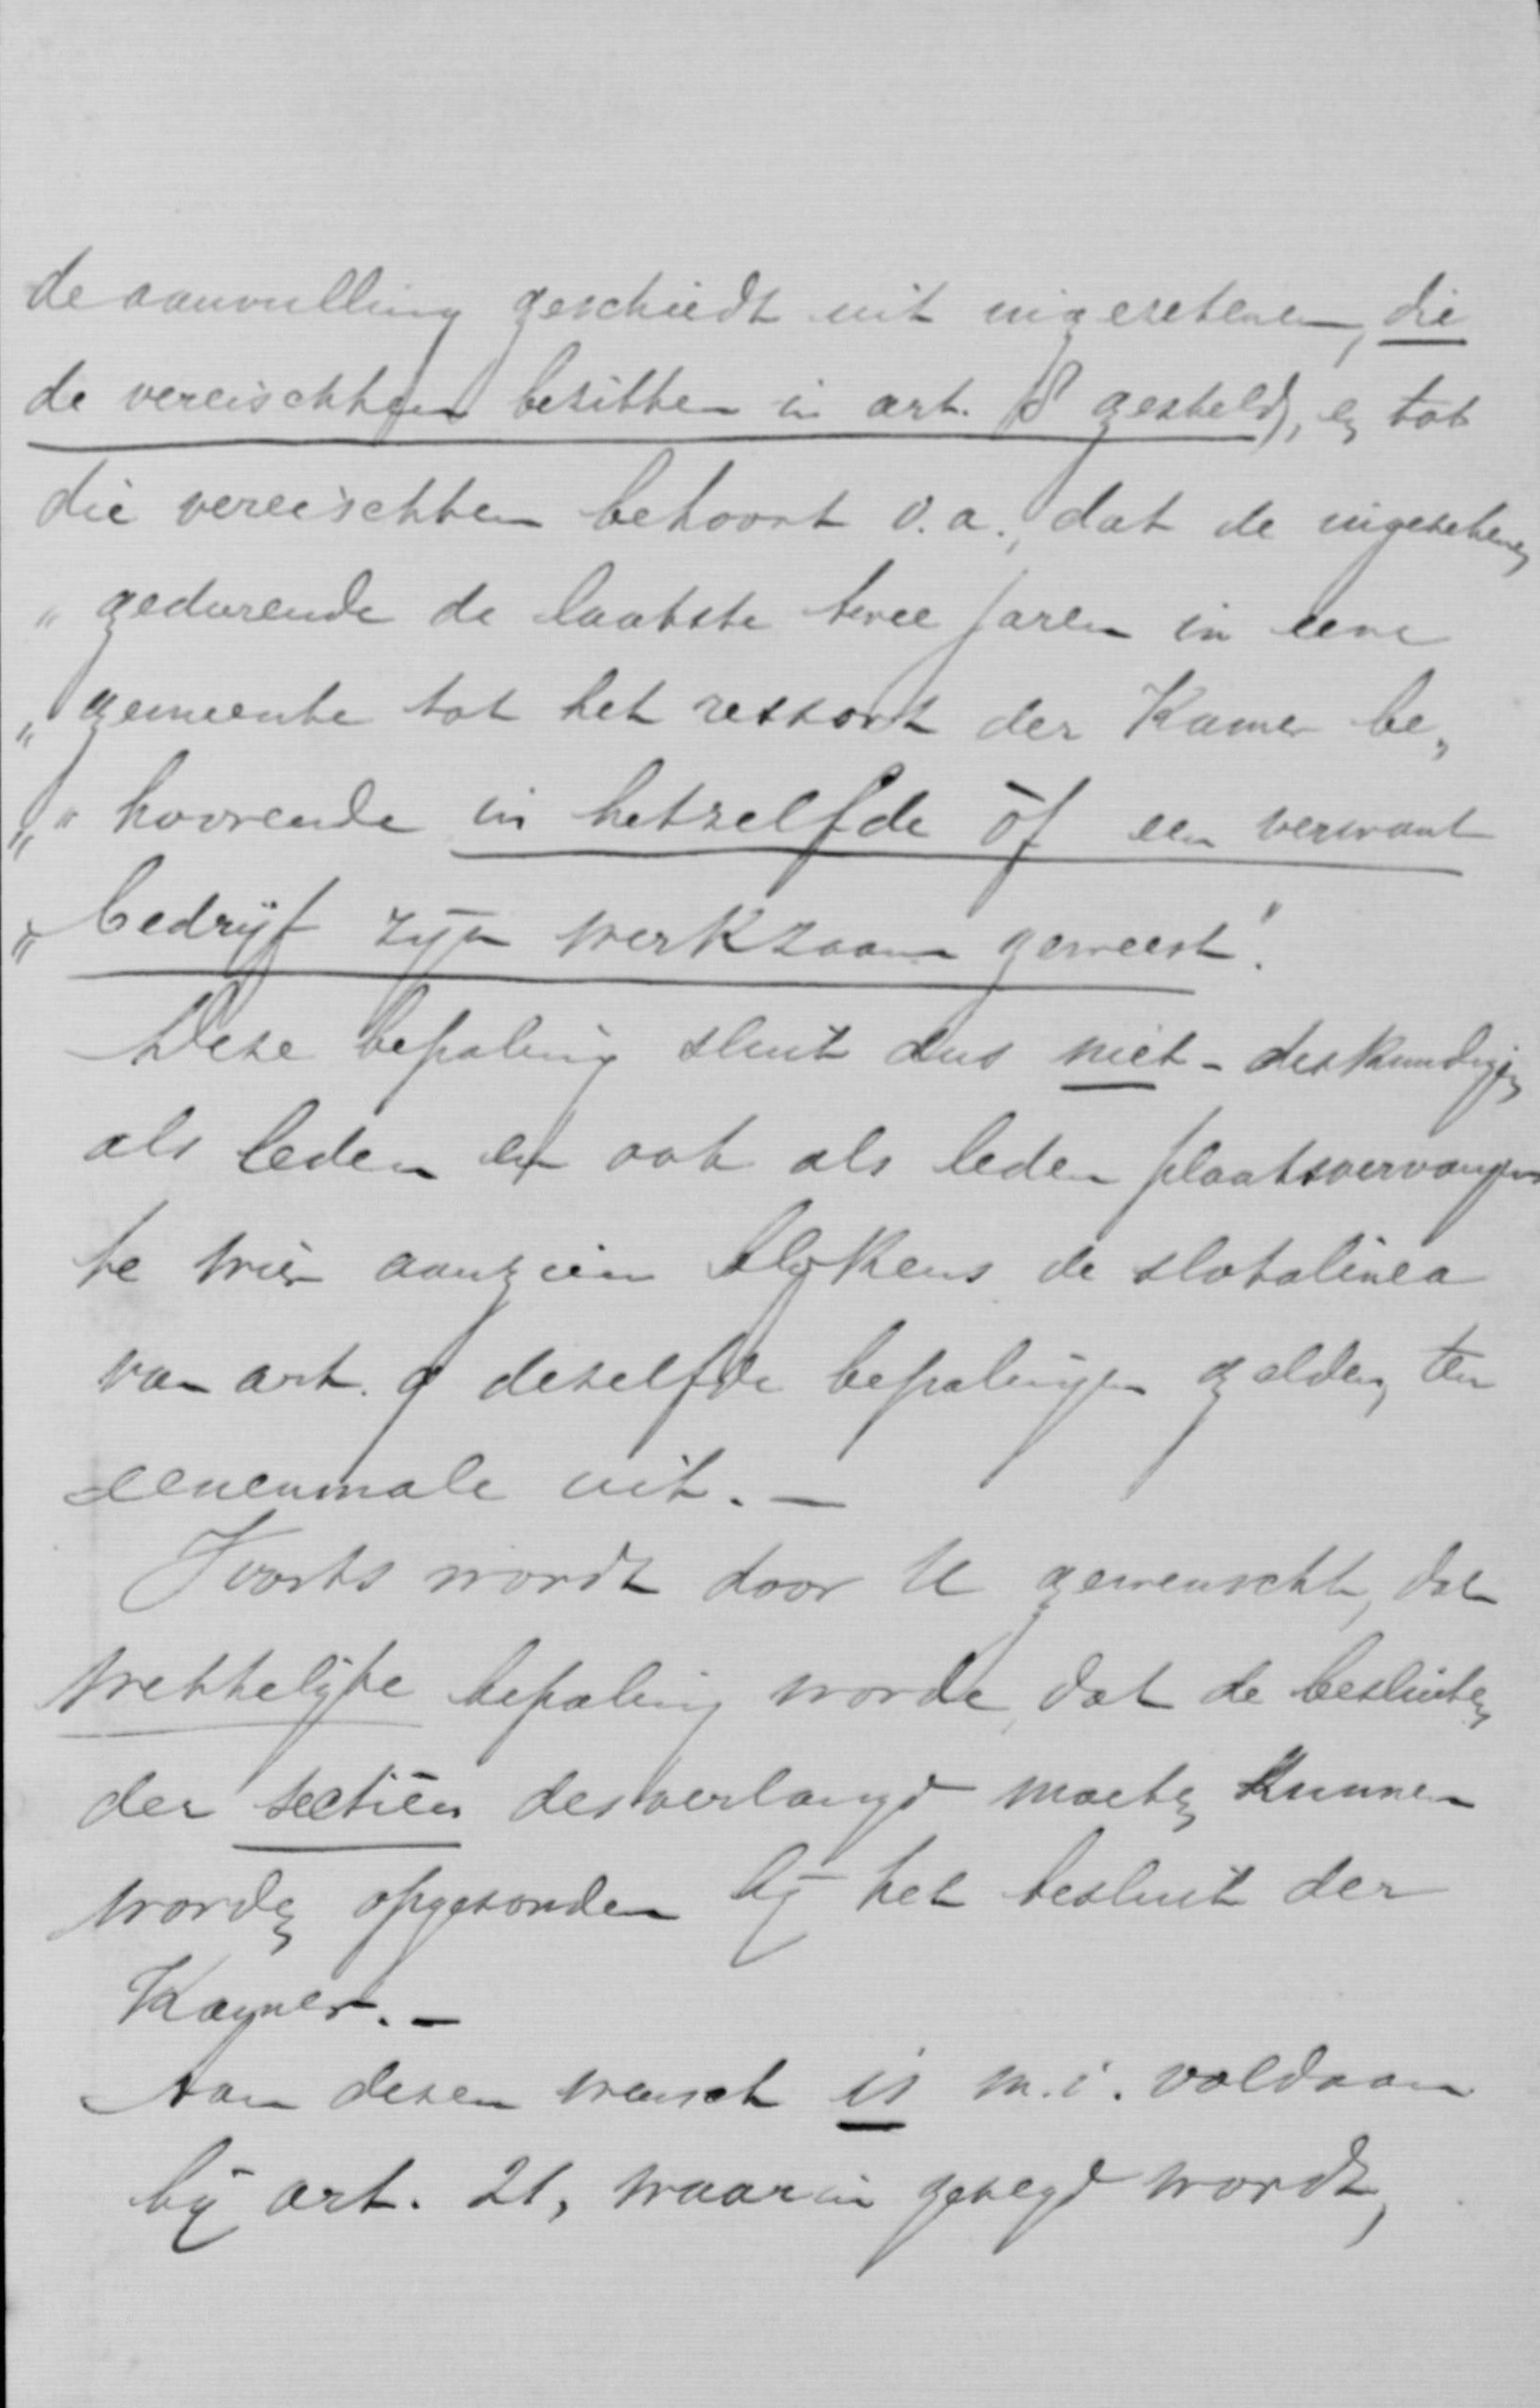 de aanvulling geschiedt uit ingezetenen, die
de vereischten bezitten in art. 8 gesteld, en tot
die vereischten behoort o.a., dat de ingezetenen
„gedurende de laatste twee jaren in eene
„gemeente tot het ressort der Kamer be„
„„hoorende in hetzelfde óf een verwant
„bedrijf zijn werkzaam geweest".
Deze bepaling sluit dus niet-deskundigen
als leden en ook als leden plaatsvervangers
te wier aanzien blijkens de slotalinea
van art. 9 dezelfde bepalingen gelden, ten
eenenmale uit. —
Voorts wordt door U gewenscht, dat
wettelijke bepaling worde, dat de besluiten
der sectiën desverlangd moeten kunnen
worden opgezonden bij het besluit der
Kamer. —
Aan dezen wensch is m.i. voldaan
bij art. 21, waarin gezegd wordt,